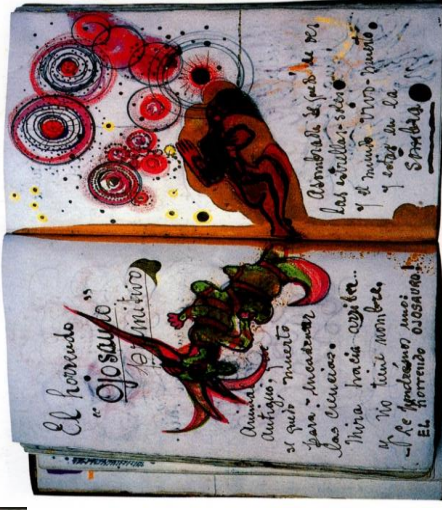 El horrendo
"Ojosauro"
primitivo
Animal
antiguo,
que quedó muerto
para encadenar
las ciencias.
Mira hacia arriba..
y no tiene nombre.
– Le pondremos uno:
EL horrendo OJOSAURO!
Asombrada se quedó de ver
las estrellas-soles
y el mundo vivo-muerto
y estar en la
sombra